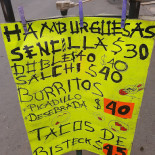 HAMBURGUESAS
SENCILLA $30
DOBLE $40
SALCHI $40
BURRITOS
PICADILLO
DESEBRADA $40
TACOS DE
BISTECK $45